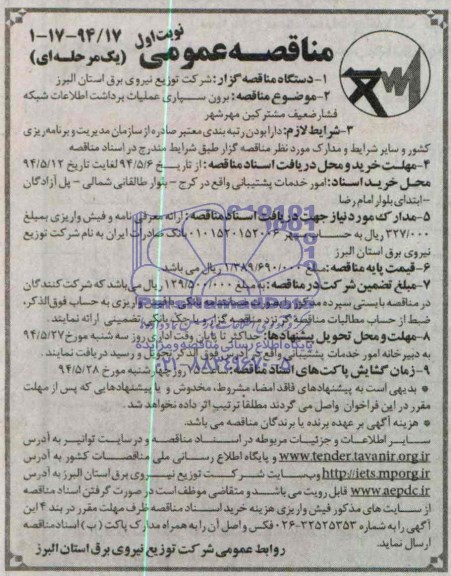 نوبت اول
۱-۱۷-۹۴/۱۷
مناقصه عمومی (یک مرحله‌ای)
۱-دستگاه مناقصه گزار: شرکت توزیع نیروی برق استان البرز
۲-موضوع مناقصه: برون سپاری عملیات برداشت اطلاعات شبکه
فشار ضعیف مشترکین مهرشهر
۳-شرایط لازم: دارا بودن رتبه بندی معتبر صادره از سازمان مدیریت و برنامه ریزی
کشور و سایر شرایط و مدارک مورد نظر مناقصه گزار طبق شرایط مندرج در اسناد مناقصه
۴-مهلت خرید و محل دریافت اسناد مناقصه: از تاریخ ۹۴/۵/۶ لغایت تاریخ ۹۴/۵/۱۲
محل خرید اسناد: امور خدمات پشتیبانی واقع در کرج - بلوار طالقانی شمالی - پل آزادگان
-ابتدای بلوار امام رضا
۵-مدارک مورد نیاز جهت دریافت اسناد مناقصه: ارائه معرفی نامه و فیش واریزی بمبلغ
۳۲۷/۰۰۰ ریال به حساب سپهر ۰۱۰۱۵۲۰۱۵۲۰۰۶ بانک صادرات ایران به نام شرکت توزیع
نیروی برق استان البرز
۶-قیمت پایه مناقصه: مبلغ ۱/۳۸۹/۶۹۰/۰۰۰ ریال می باشد
۷-مبلغ تضمین شرکت در مناقصه: به مبلغ ۱۳۹/۵۰۰/۰۰۰ ریال می باشد که شرکت کنندگان
در مناقصه بایستی سپرده مذکور را بصورت ضمانتنامه بانکی یا فیش واریزی به حساب فوق الذکر،
ضبط از حساب مطالبات مناقصه گر نزد مناقصه گزار و یا چک بانکی تضمینی ارائه نمایند.
۸-مهلت و محل تحویل پیشنهادها: حداکثر تا پایان وقت اداری روز سه شنبه مورخ ۹۴/۵/۲۷
به دبیرخانه امور خدمات پشتیبانی واقع در آدرس فوق الذکر تحویل و رسید دریافت نمایند.
۹-زمان گشایش پاکت های اسناد مناقصه: ساعت روز چهارشنبه مورخ ۹۴/۵/۲۸
* بدیهی است به پیشنهادهای فاقد امضا، مشروط، مخدوش و یا پیشنهادهایی که پس از مهلت
مقرر در این فراخوان واصل می گردند مطلقاً ترتیب اثر داده نخواهد شد.
* هزینه آگهی بر عهده برنده یا برندگان مناقصه می باشد.
سایر اطلاعات و جزئیات مربوطه در اسناد مناقصه و در سایت توانیر به آدرس
www.tender.tavanir.org.ir و پایگاه اطلاع رسانی ملی مناقصات کشور به آدرس
http://iets.mporg.ir وب سایت شرکت توزیع نیروی برق استان البرز به آدرس
www.aepdc.ir قابل رویت می باشد و متقاضی موظف است در صورت گرفتن اسناد مناقصه
از سایت های مذکور فیش واریزی هزینه خرید اسناد مناقصه ظرف مهلت مقرر در بند ۴ این
آگهی را به شماره ۳۲۵۲۵۳۵۳-۰۲۶ فکس و اصل آن را به همراه مدارک پاکت (ب) اسناد مناقصه
ارسال نماید.
روابط عمومی شرکت توزیع نیروی برق استان البرز